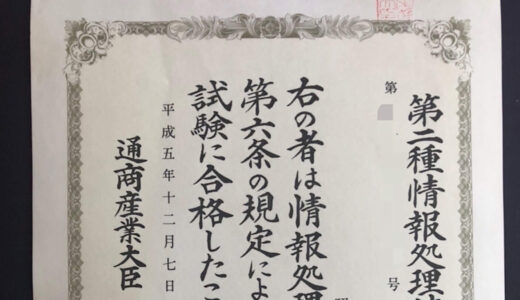 第二種情報処理
第 号
右の者は情報処理
第六条の規定によ
試験に合格したこ
平成五年十二月七日
通商産業大臣